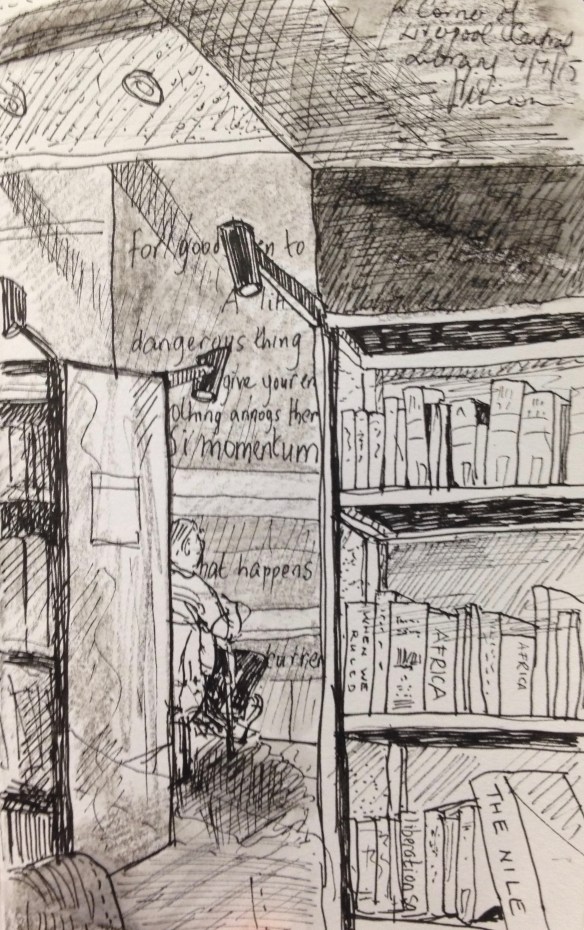 A Corner of
Liverpool Central
Library 4/7/15
for good en to
A lit
dangerous thing
give your en
othing annoys them
Si momentum
hat happens
butter
WHEN WE RULED
AFRICA
AFRICA
liberation Sq
THE NILE